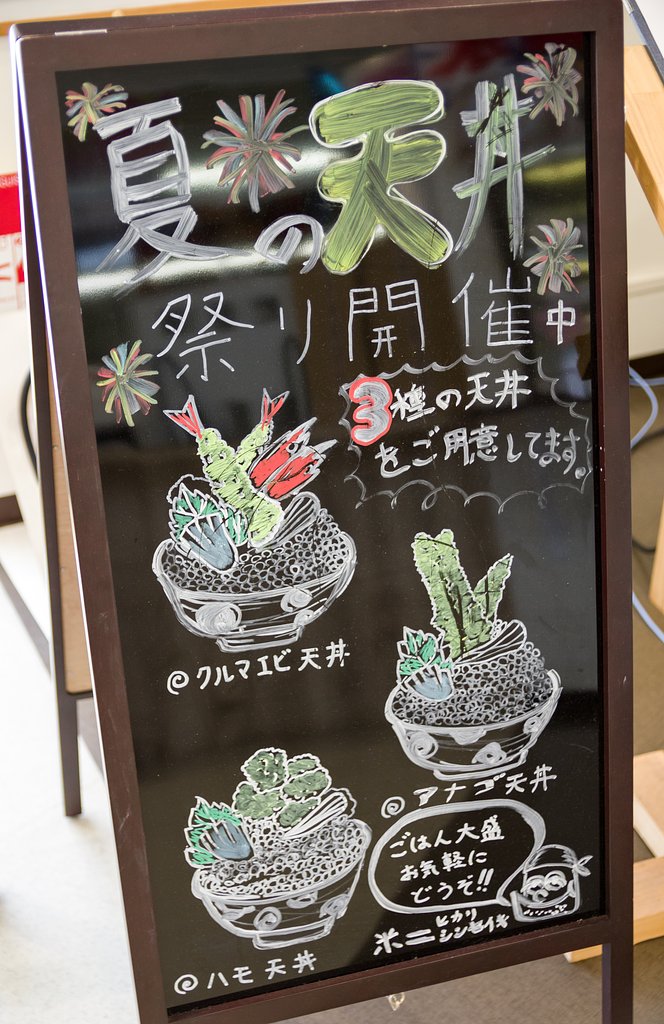 夏の天丼
祭り開催中
3種の天丼
をご用意してます。
@クルマエビ天丼
@アナゴ天丼
ごはん大盛
お気軽に
どうぞ!!
@ハモ天丼
ヒカリ